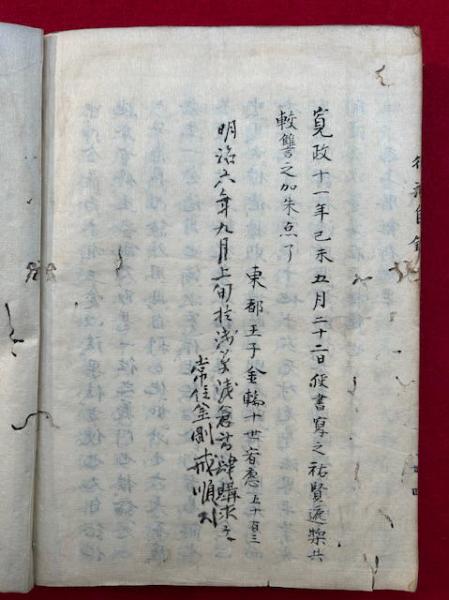 寛政十一年己未五月二十二日使書写之祐賢遍槩共
較讐之加朱点了
東都王子金輪十世宥憲五十有三
明治六年九月上旬於浅草浅倉書肆購求之
常住金剛戒順